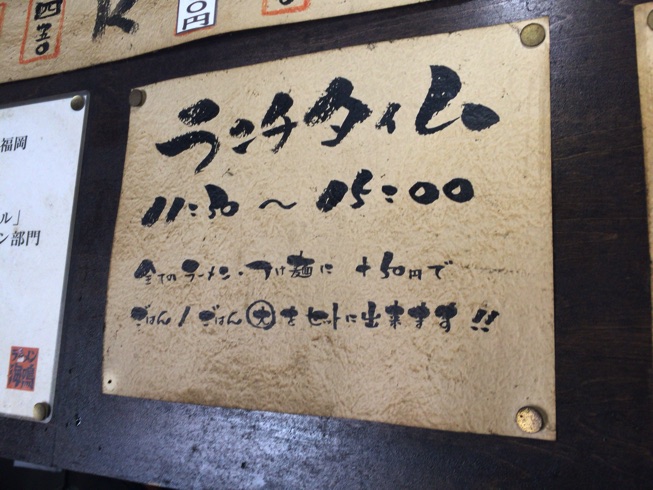 円
福岡
ル」
ン部門
ラーメン
ランチタイム
11:30 ～ 15:00
全てのラーメン・つけ麺に +50円で
ごはん / ごはん大をセットに出来ます!!